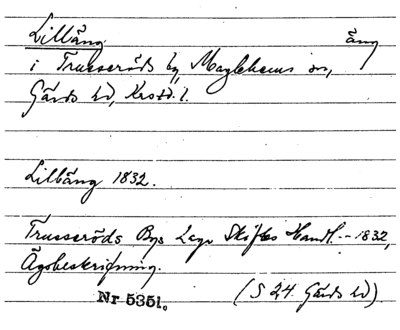 Lilläng äng
i Trusseröds by, Maglehems sn,
Gärds hd, Krstd. l.
Lilläng 1832.
Trusseröds Bys Laga Skiftes Handl. - 1832,
Ägobeskrifning.
(S 24 Gärds hd).
Nr 5351.